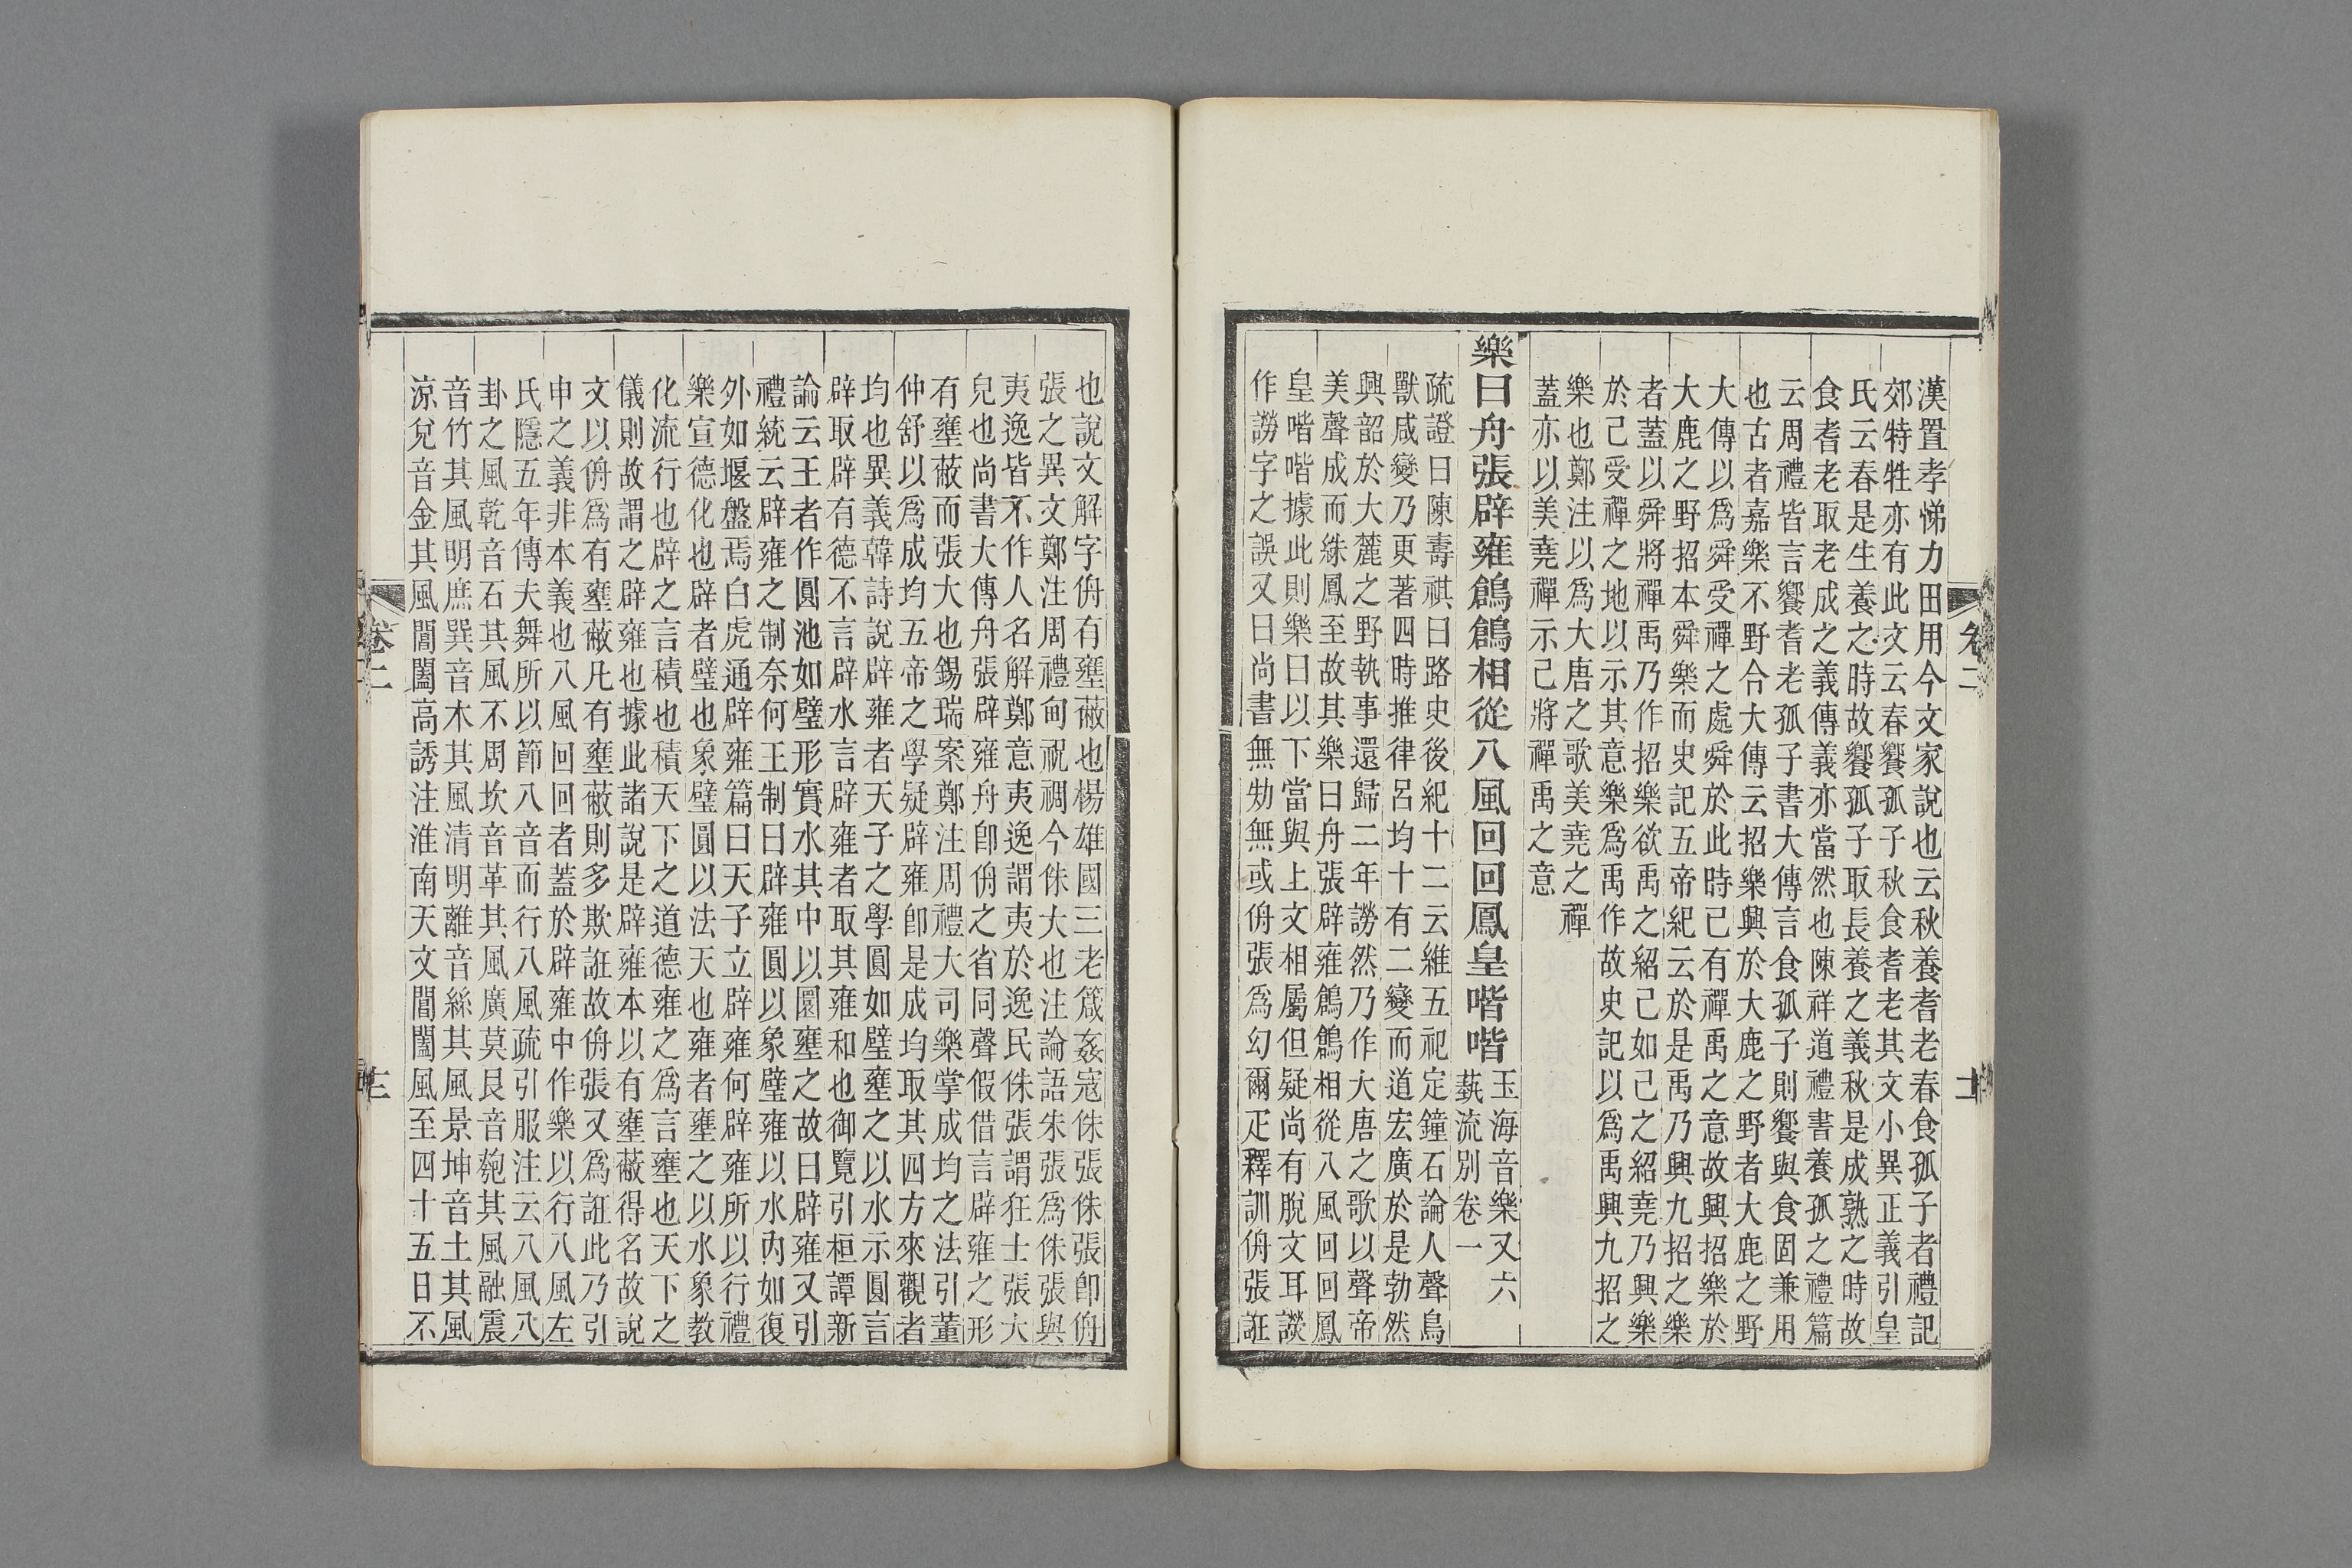 漢置孝悌力田用今文家說也云秋養耆老春食孤子者禮記
郊特牲亦有此文云春饗孤子秋食耆老其文小異正義引皇
氏云春是生養之時故饗孤子取長養之義秋是成熟之時故
食耆老取老成之義傳義亦當然也陳祥道禮書養孤之禮篇
云周禮皆言饗耆老孤子書大傳言食孤子則饗與食固兼用
也古者嘉樂不野合大傳云招樂興於大鹿之野者大鹿之野
大傳以爲舜受禪之處舜於此時已有禪禹之意故興招樂於
大鹿之野招本舜樂而史記五帝紀云於是禹乃興九招之樂
者蓋以舜將禪禹乃作招樂欲禹之紹己如己之紹堯乃興樂
於己受禪之地以示其意樂爲禹作故史記以爲禹興九招之
樂也鄭注以爲大唐之歌美堯之禪
蓋亦以美堯禪示己將禪禹之意
樂曰舟張辟雍鶬鶬相從八風回回鳳皇喈喈
玉海音樂又六
蓺流別卷一
疏證曰陳壽祺曰路史後紀十二云維五祀定鐘石論人聲鳥
獸咸變乃更著四時推律呂均十有二變而道宏廣於是勃然
興韶於大麓之野執事還歸二年謗然乃作大唐之歌以聲帝
美聲成而絑鳳至故其樂曰舟張辟雍鶬鶬相從八風回回鳳
皇喈喈據此則樂曰以下當與上文相屬但疑尚有脫文耳謗
作謗字之誤又曰尚書無劮無或侜張爲幻爾疋釋訓侜張誑
也說文解字侜有壅蔽也楊雄國三老箴姦寇侏張侏張卽侜
張之異文鄭注周禮甸祝禂今侏大也注論語朱張爲侏張與
夷逸皆不作人名解鄭意夷逸謂夷於逸民侏張謂狂士張大
兒也尚書大傳舟張辟雍舟卽侜之省同聲假借言辟雍之形
有壅蔽而張大也錫瑞案鄭注周禮大司樂掌成均之法引董
仲舒以爲成均五帝之學疑辟雍卽是成均取其四方來觀者
均也異義韓詩說辟雍者天子之學圓如璧壅之以水示圓言
辟取辟有德不言辟水言辟雍者取其雍和也御覽引桓譚新
論云王者作圓池如璧形實水其中以圜壅之故曰辟雍又引
禮統云辟雍之制奈何王制曰辟雍圓以象璧雍以水內如復
外如堰盤焉白虎通辟雍篇曰天子立辟雍何辟雍所以行禮
樂宣德化也辟者璧也象璧圓以法天也雍者壅之以水象教
化流行也辟之言積也積天下之道德雍之爲言壅也天下之
儀則故謂之辟雍也據此諸說是辟雍本以有壅蔽得名故說
文以侜爲有壅蔽凡有壅蔽則多欺誑故侜張又爲誑此乃引
申之義非本義也八風回回者蓋於辟雍中作樂以行八風左
氏隱五年傳夫舞所以節八音而行八風疏引服注云八風八
卦之風乾音石其風不周坎音革其風廣莫艮音匏其風融震
音竹其風明庶巽音木其風清明離音絲其風景坤音土其風
涼兌音金其風閶闔高誘注淮南天文閶闔風至四十五日不